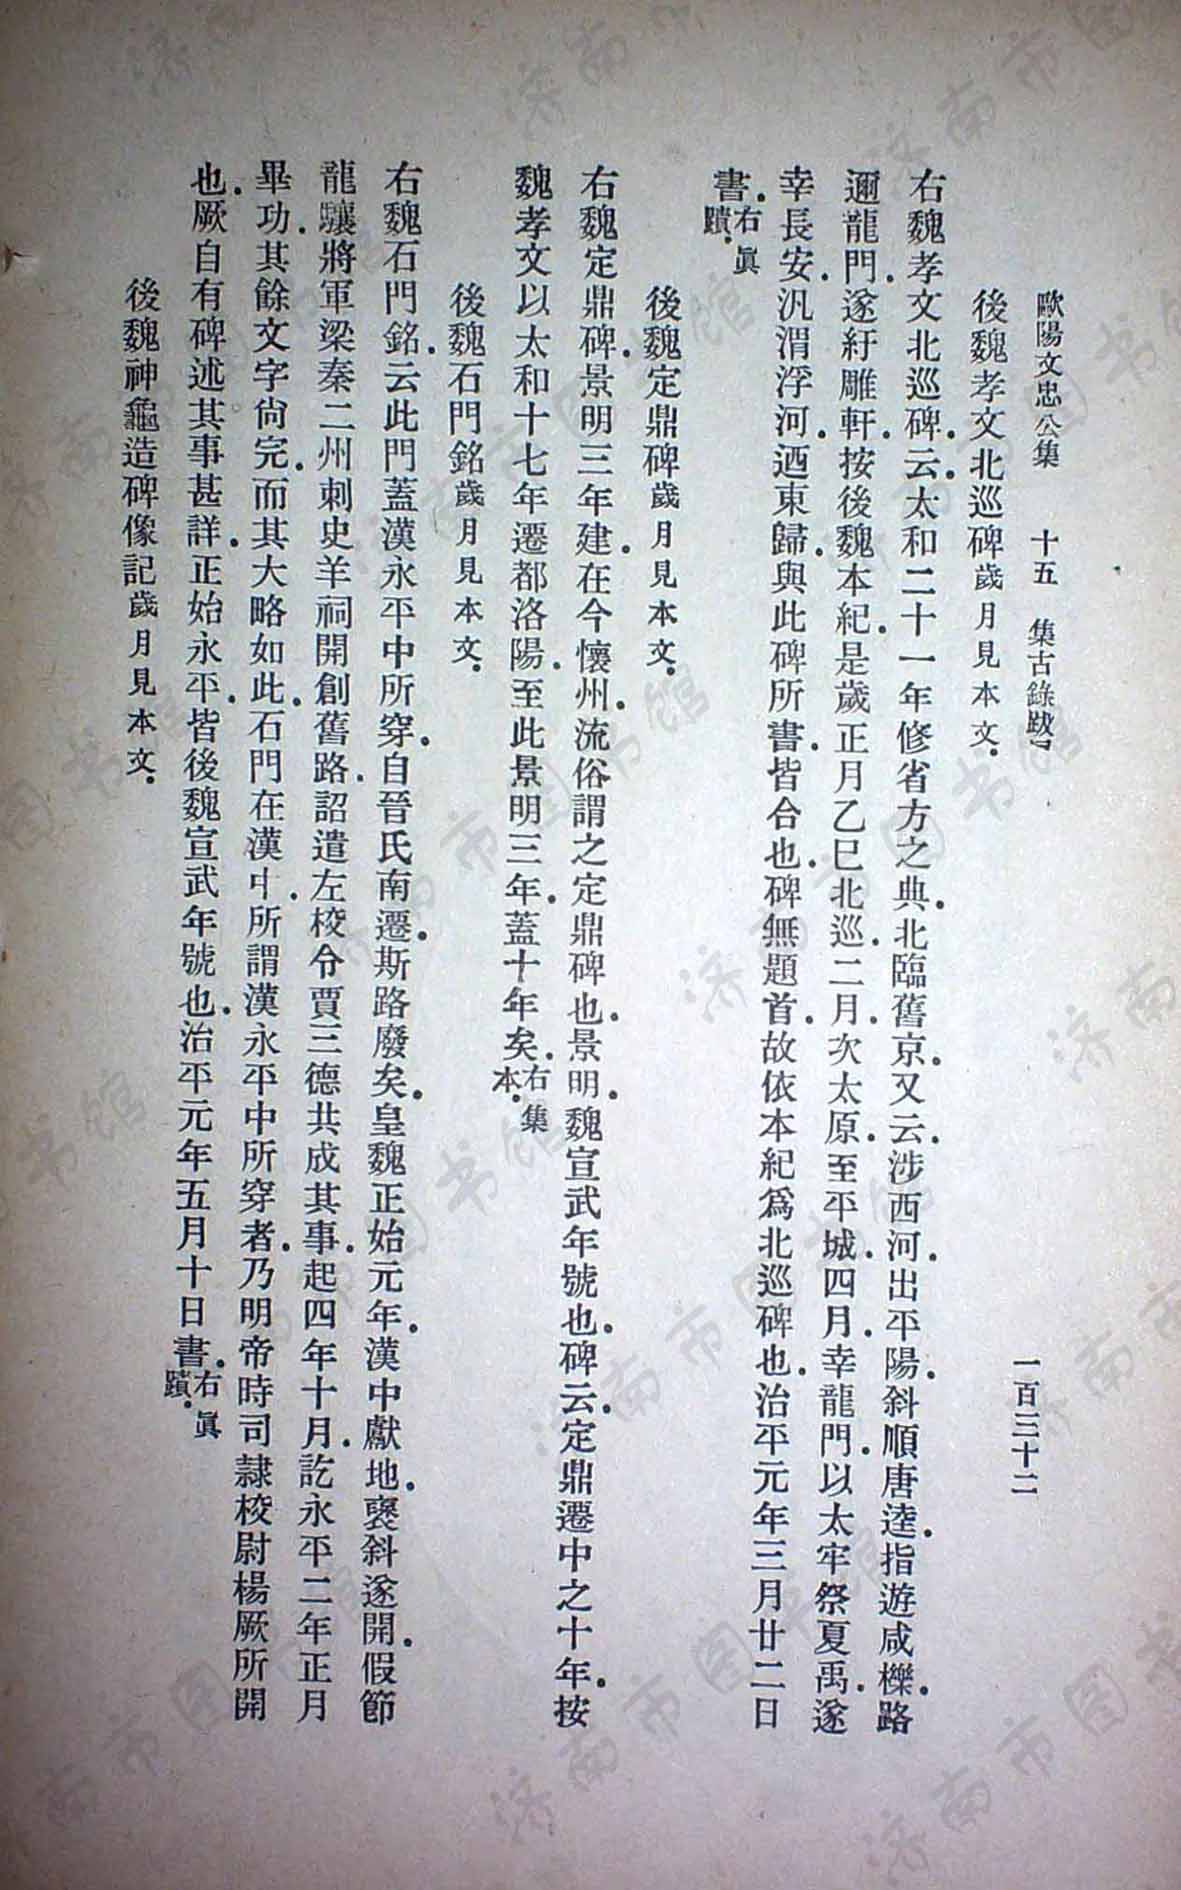 歐陽文忠公集 十五 集古錄跋 一百三十二
後魏孝文北巡碑歲月見本文.
右魏孝文北巡碑.云.太和二十一年修省方之典.北臨舊京.又云.涉西河.出平陽.斜順唐逵.指遊咸櫟.路
邇龍門.遂紆雕軒.按後魏本紀.是歲正月乙巳北巡.二月.次太原.至平城.四月.幸龍門.以太牢祭夏禹.遂
幸長安.汎渭浮河.迺東歸.與此碑所書.皆合也.碑無題首.故依本紀爲北巡碑也.治平元年三月廿二日
書.右眞蹟.
後魏定鼎碑歲月見本文.
右魏定鼎碑.景明三年建.在今懷州.流俗謂之定鼎碑也.景明.魏宣武年號也.碑云.定鼎遷中之十年.按
魏孝文以太和十七年遷都洛陽.至此景明三年.蓋十年矣.右集本.
後魏石門銘歲月見本文.
右魏石門銘.云此門蓋漢永平中所穿.自晉氏南遷.斯路廢矣.皇魏正始元年.漢中獻地.褒斜遂開.假節
龍驤將軍梁秦二州刺史羊祠開創舊路.詔遣左校令賈三德共成其事.起四年十月.訖永平二年正月
畢功.其餘文字尙完.而其大略如此.石門在漢中.所謂漢永平中所穿者.乃明帝時司隷校尉楊厥所開
也.厥自有碑述其事甚詳.正始永平.皆後魏宣武年號也.治平元年五月十日書.右眞蹟.
後魏神龜造碑像記歲月見本文.
济南市图书馆